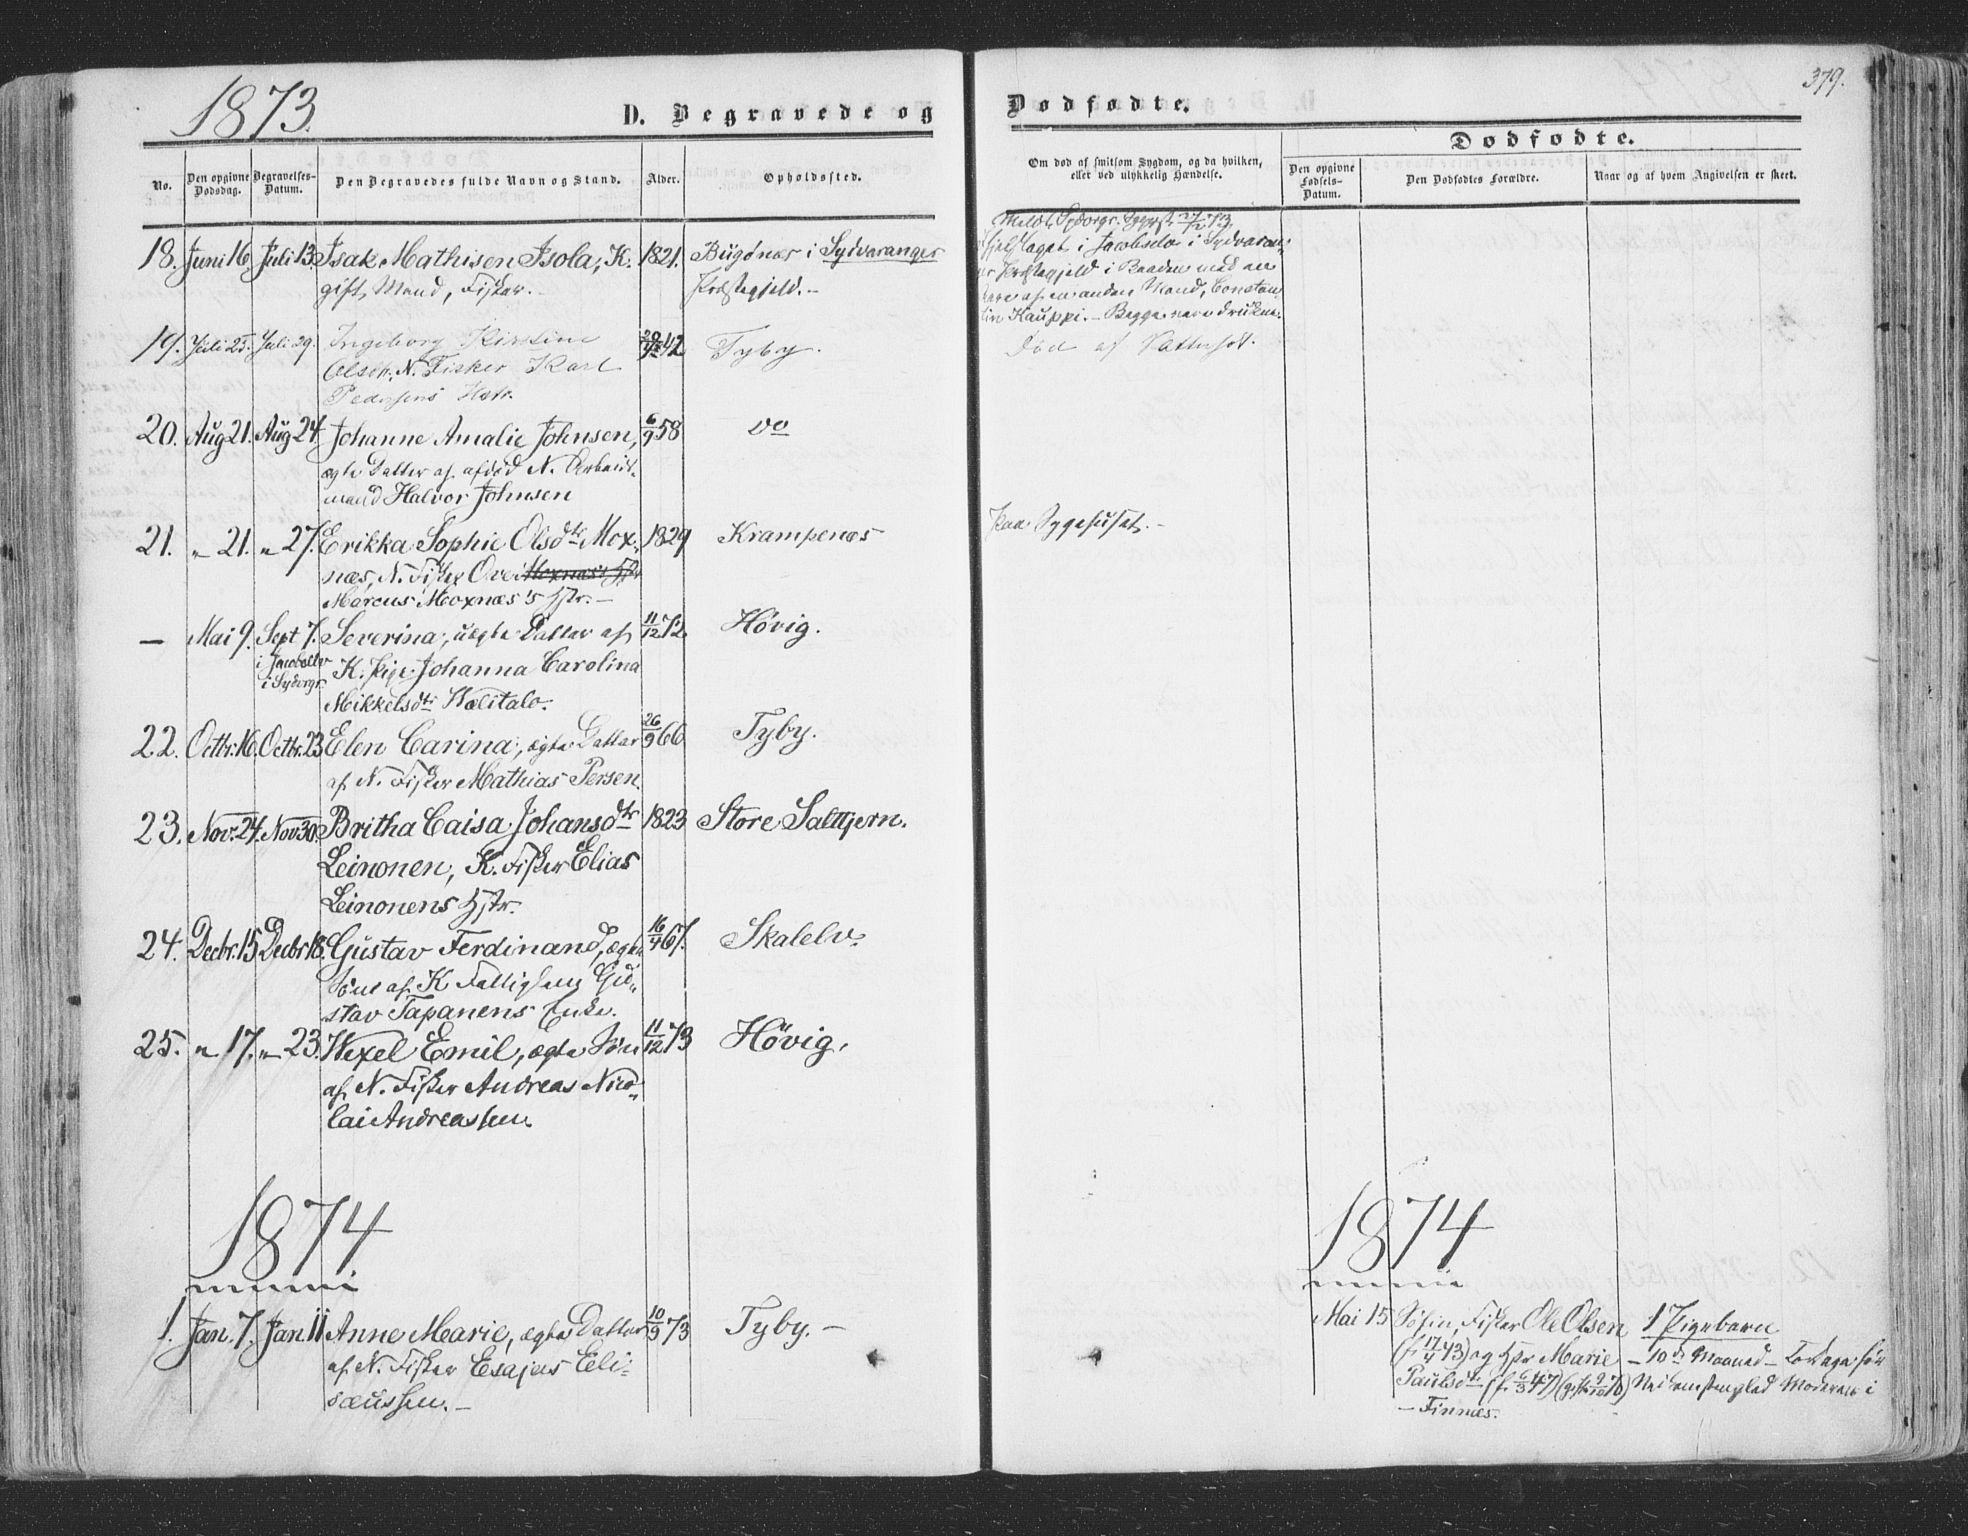 1873.
D. Begravede og
No.
Den opgivne Dødsdag.
Begravelses-Datum.
Den Begravedes fulde Navn og Stand.
Alder.
Opholdssted.
18. Juni 16. Juli 13. Isak Mathisen Isola, K. 1821. Bugønæs i Sydvaranger
gift Mand, Fisker. Præstegjeld.
19. Juli 25. Juli 29. Ingeborg Kirstine 42 Tyby.
Olsen, N. Fisker Karl
Pedersens Hstr.
20. Aug 21. Aug 24 Johanne Amalie Johnsen, 6/9 58 do
ægte Datter af afdød N. Arbeids-
mand Halvor Johnsen
21. " 21. " 27. Erikka Sophie Olsdtr Mox- 1829 Krampenæs
næs, N. Fisker Ove Moxnæs's Hstr
Marcus Moxnæs's Hstr.
— Mai 9. Sept 7. Severina, uægte Datter af 11/12 72. Høvig.
i Jacobselv K. Pige Johanna Carolina
i Sydvrgr. Mikkelsdtr Wælitalo.
22. Octbr. 16. Octbr. 23 Elen Carina, ægte Datter 26/9 66 Tyby.
af N. Fisker Mathias Persen.
23. Nov. 24. Nov 30. Britha Caisa Johansdtr 1823 Store Saltijern.
Leinonen, K. Fisker Elias
Leinonens Hstr.
24. Decbr. 15. Decbr 18. Gustav Ferdinand, ægte 16/4 67. Skalelv.
Søn af K Fattiglem Gu-
stav Tapanens Enke.
25. " 17. " 23. Wexel Emil, ægte Søn 11/12 73 Høvig.
af N. Fisker Andreas Nico-
lai Andreassen.
1874
1. Jan. 7. Jan. 11 Anne Marie, ægte Datter 10/9 73 Tyby. —
af N. Fisker Esajas Eli-
sæussen. —
379.
Dødfødte.
Om død af smitsom Sygdom, og da hvilken,
eller ved ulykkelig Hændelse.
Dødfødte.
Den opgivne Fødsels-Datum.
Den Dødfødtes Forældre.
Naar og af hvem Angivelsen er skeet.
i Jacobselv i Sydvaran-
Præstegjeld i Baaden med en
af en anden Mand, Constan-
tin Kauppi. — Begge vare drukne.
Død af Vattersot.
Paa Sygehuset. —
1874
Mai 15 Fisker Ole Olsen 1 Pigebarn
(f. 17/4 43) og Hstr Marie — 10de Maaned —
Paulsdtr (f. 6/3 47) Moderen i
— Finnæs.